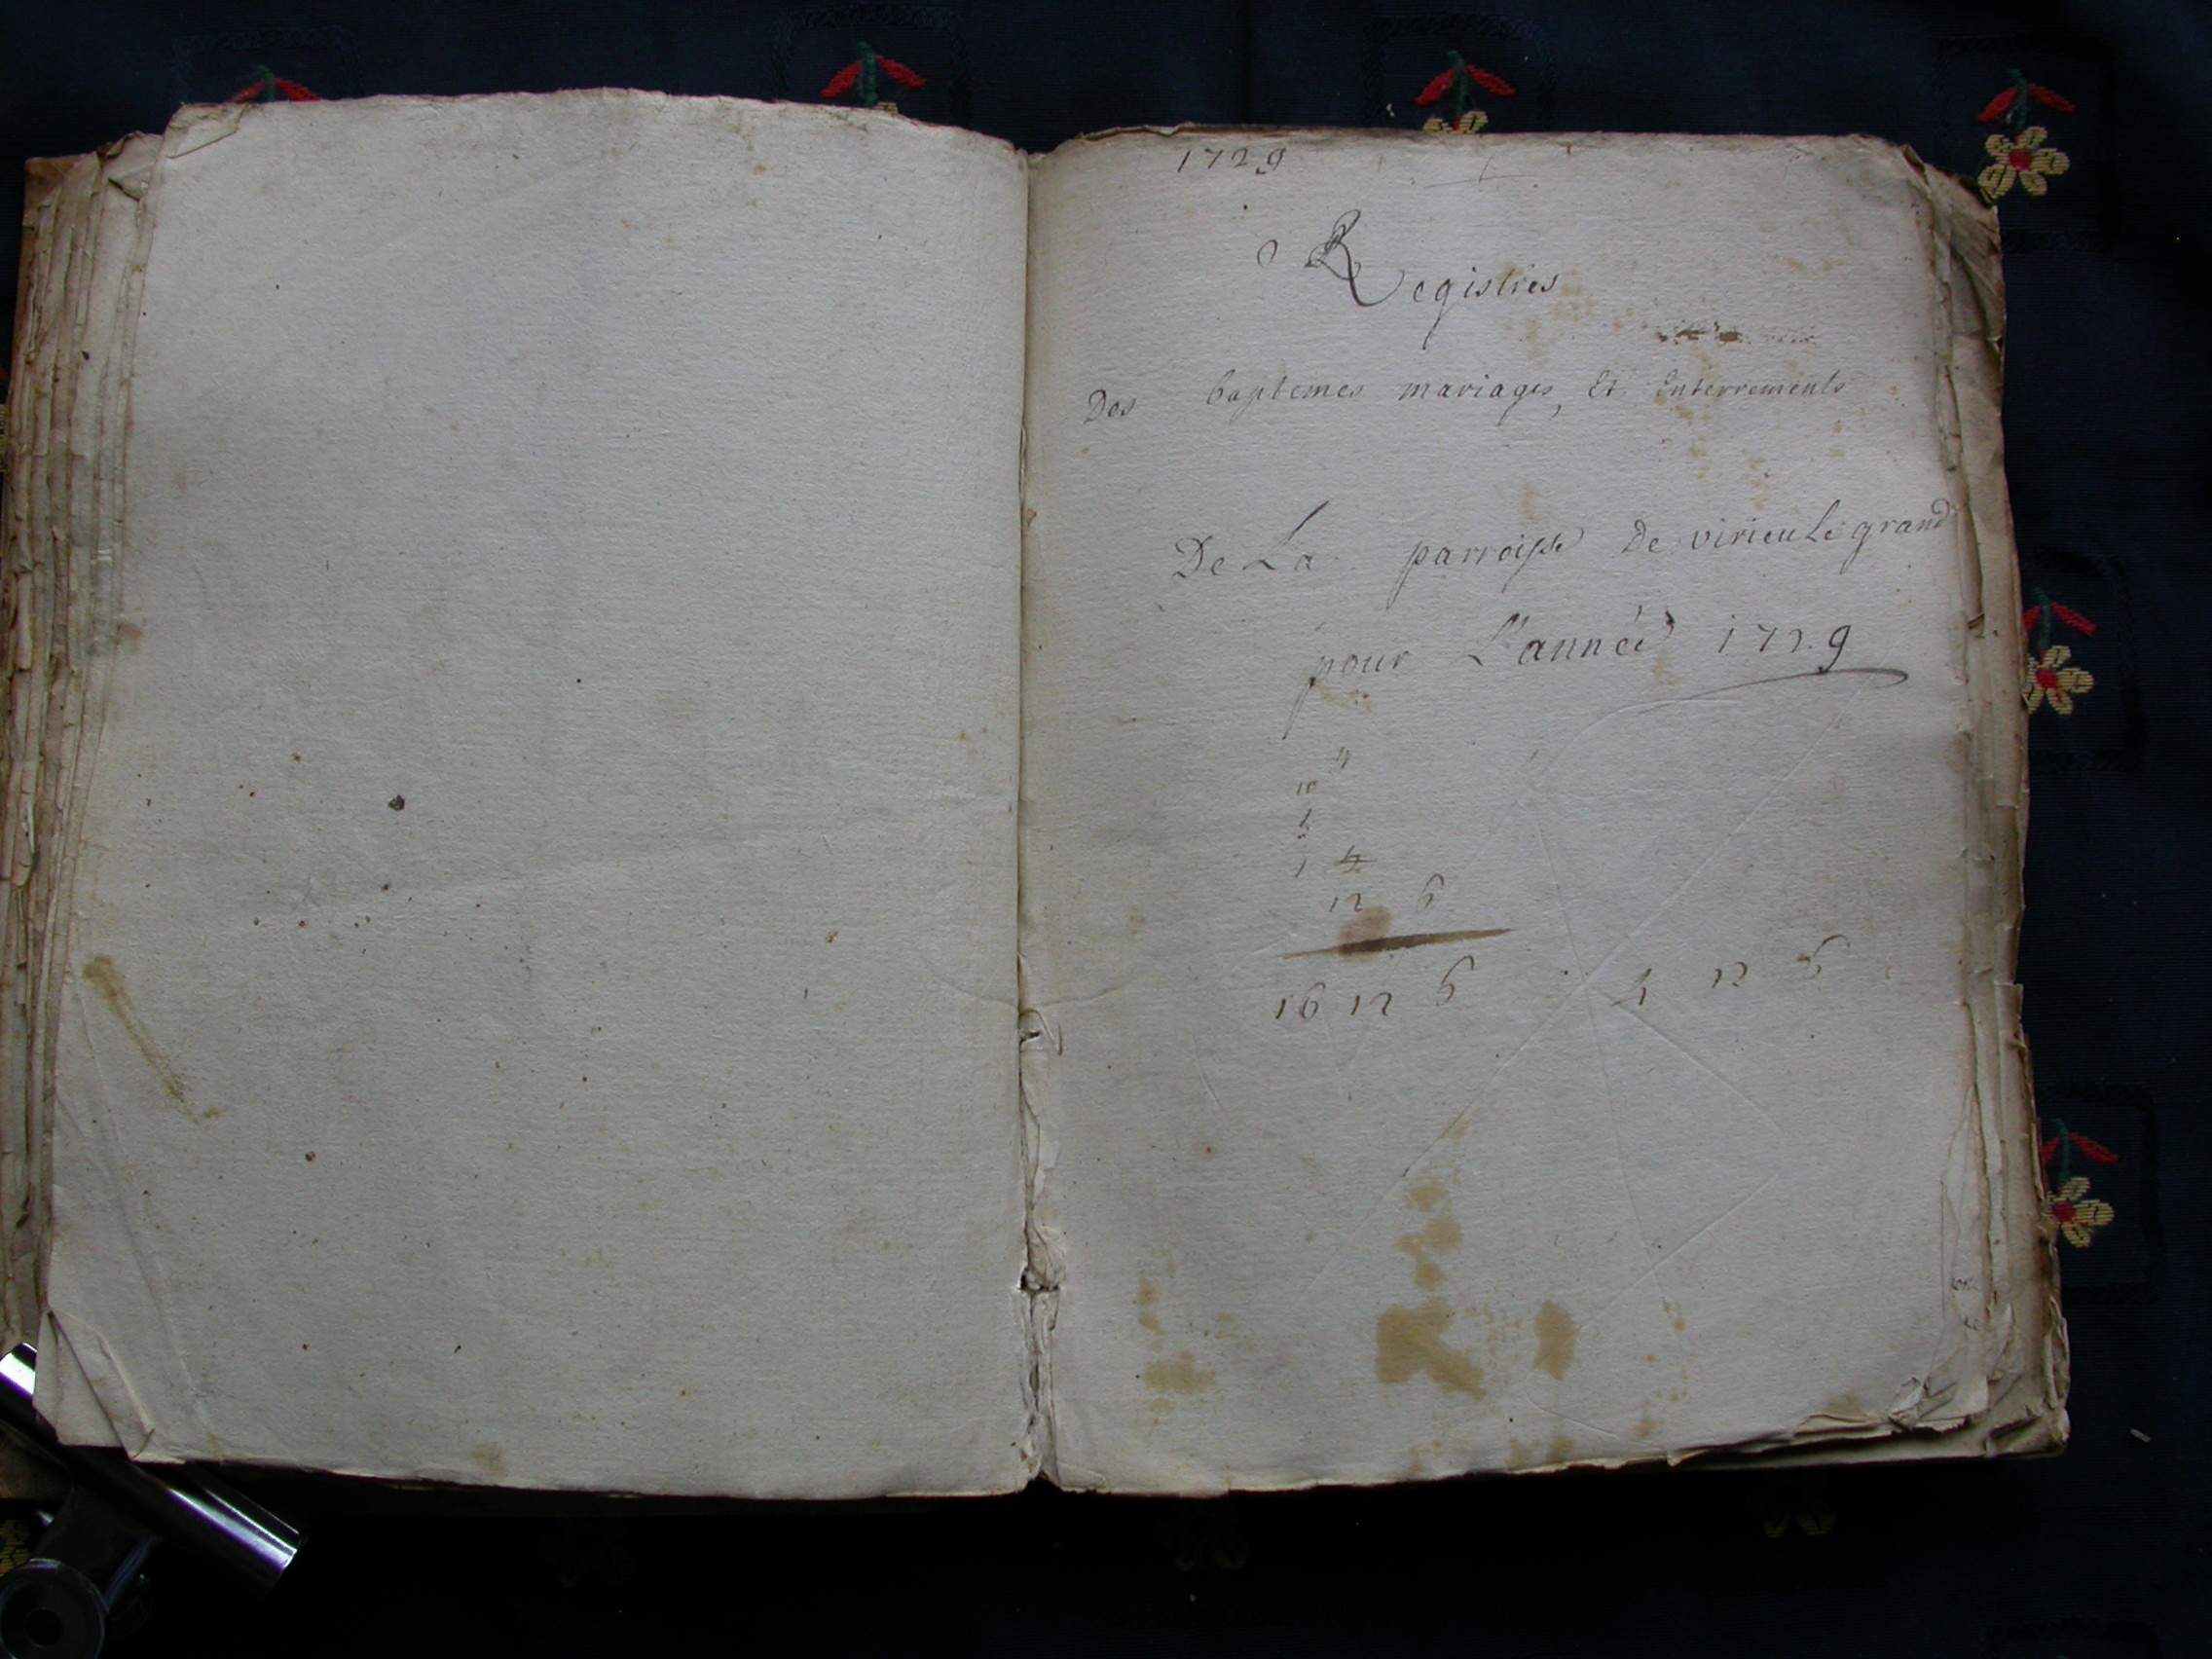 1729
Registres
Des baptemes mariages, Et Enterrements
De La parroisse De virieu Le grand
pour L'année 1729
10
1 4
12 6
16 12 6 4 12 6